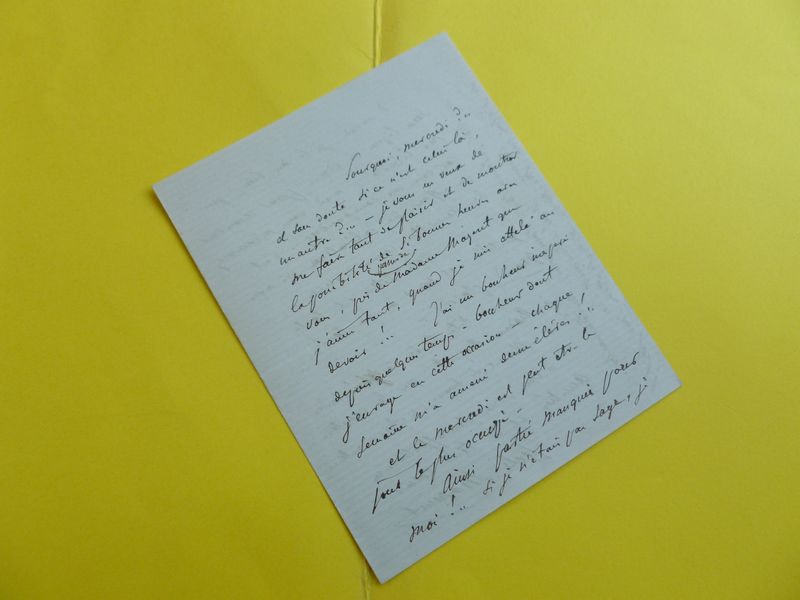 Pourquoi, mercredi ?..
et sans doute si ce n'est celui là,
un autre ?.. - je vous en veux de
me faire tant de plaisir et de montrer
la possibilité de passer de si bonnes heures avec
vous, près de Madame que
j'aime tant, quand je suis attelé au
devoir !... J'ai un bonheur inespéré
depuis quelque temps - bonheur dont
j'enrage en cette occasion - chaque
semaine m'a amené deux élèves !..
et le mercredi est peut-être le
jour le plus occupé -
Ainsi partie manquée pour
moi !.. Si je n'étais pas sage, je